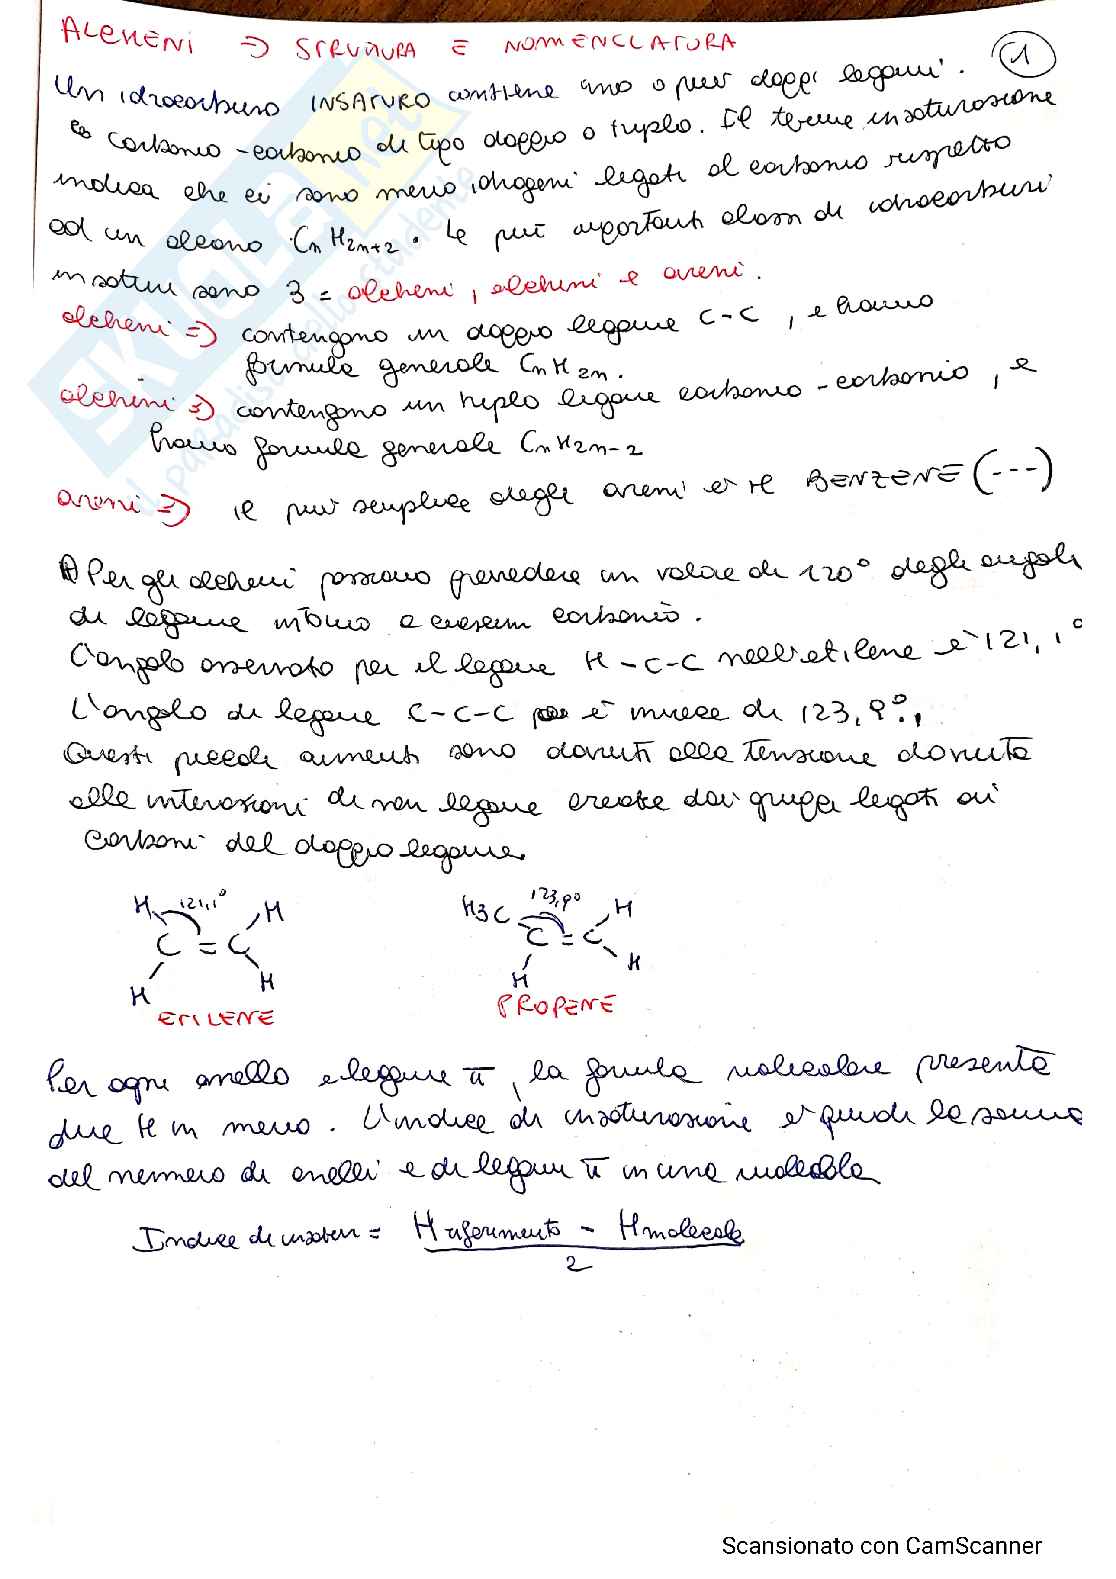 ALCHENI => STRUTTURA E NOMENCLATURA
1
Un idrocarburo INSATURO contiene uno o più doppi legami.
carbonio-carbonio di tipo doppio o triplo. Il termine insaturazione
indica che ci sono meno idrogeni legati al carbonio rispetto
ad un alcano CnH2n+2. Le più importanti classi di idrocarburi
insaturi sono 3 = alcheni, alchini e areni.
alcheni => contengono un doppio legame C-C, e hanno
formula generale CnH2n.
alchini => contengono un triplo legame carbonio-carbonio, e
hanno formula generale CnH2n-2
areni => il più semplice degli areni è il BENZENE (---)
Per gli alcheni possiamo prevedere un valore di 120° degli angoli
di legame intorno a ciascun carbonio.
L'angolo osservato per il legame H-C-C nell'etilene è 121,1°
L'angolo di legame C-C-C è invece di 123,9°.
Questi piccoli aumenti sono dovuti alla tensione dovuta
alle interazioni di non legame create dai gruppi legati ai
carboni del doppio legame.
H 121,1° H
C = C
H H
ETILENE
H3C 123,9° H
C = C
H H
PROPENE
Per ogni anello e legame π, la formula molecolare presenta
due H in meno. L'indice di insaturazione è quindi la somma
del numero di anelli e di legami π in una molecola
Indice di insatur = H riferimento - H molecola
2
SKUOLA.net
il paradiso dello studente
Scansionato con CamScanner